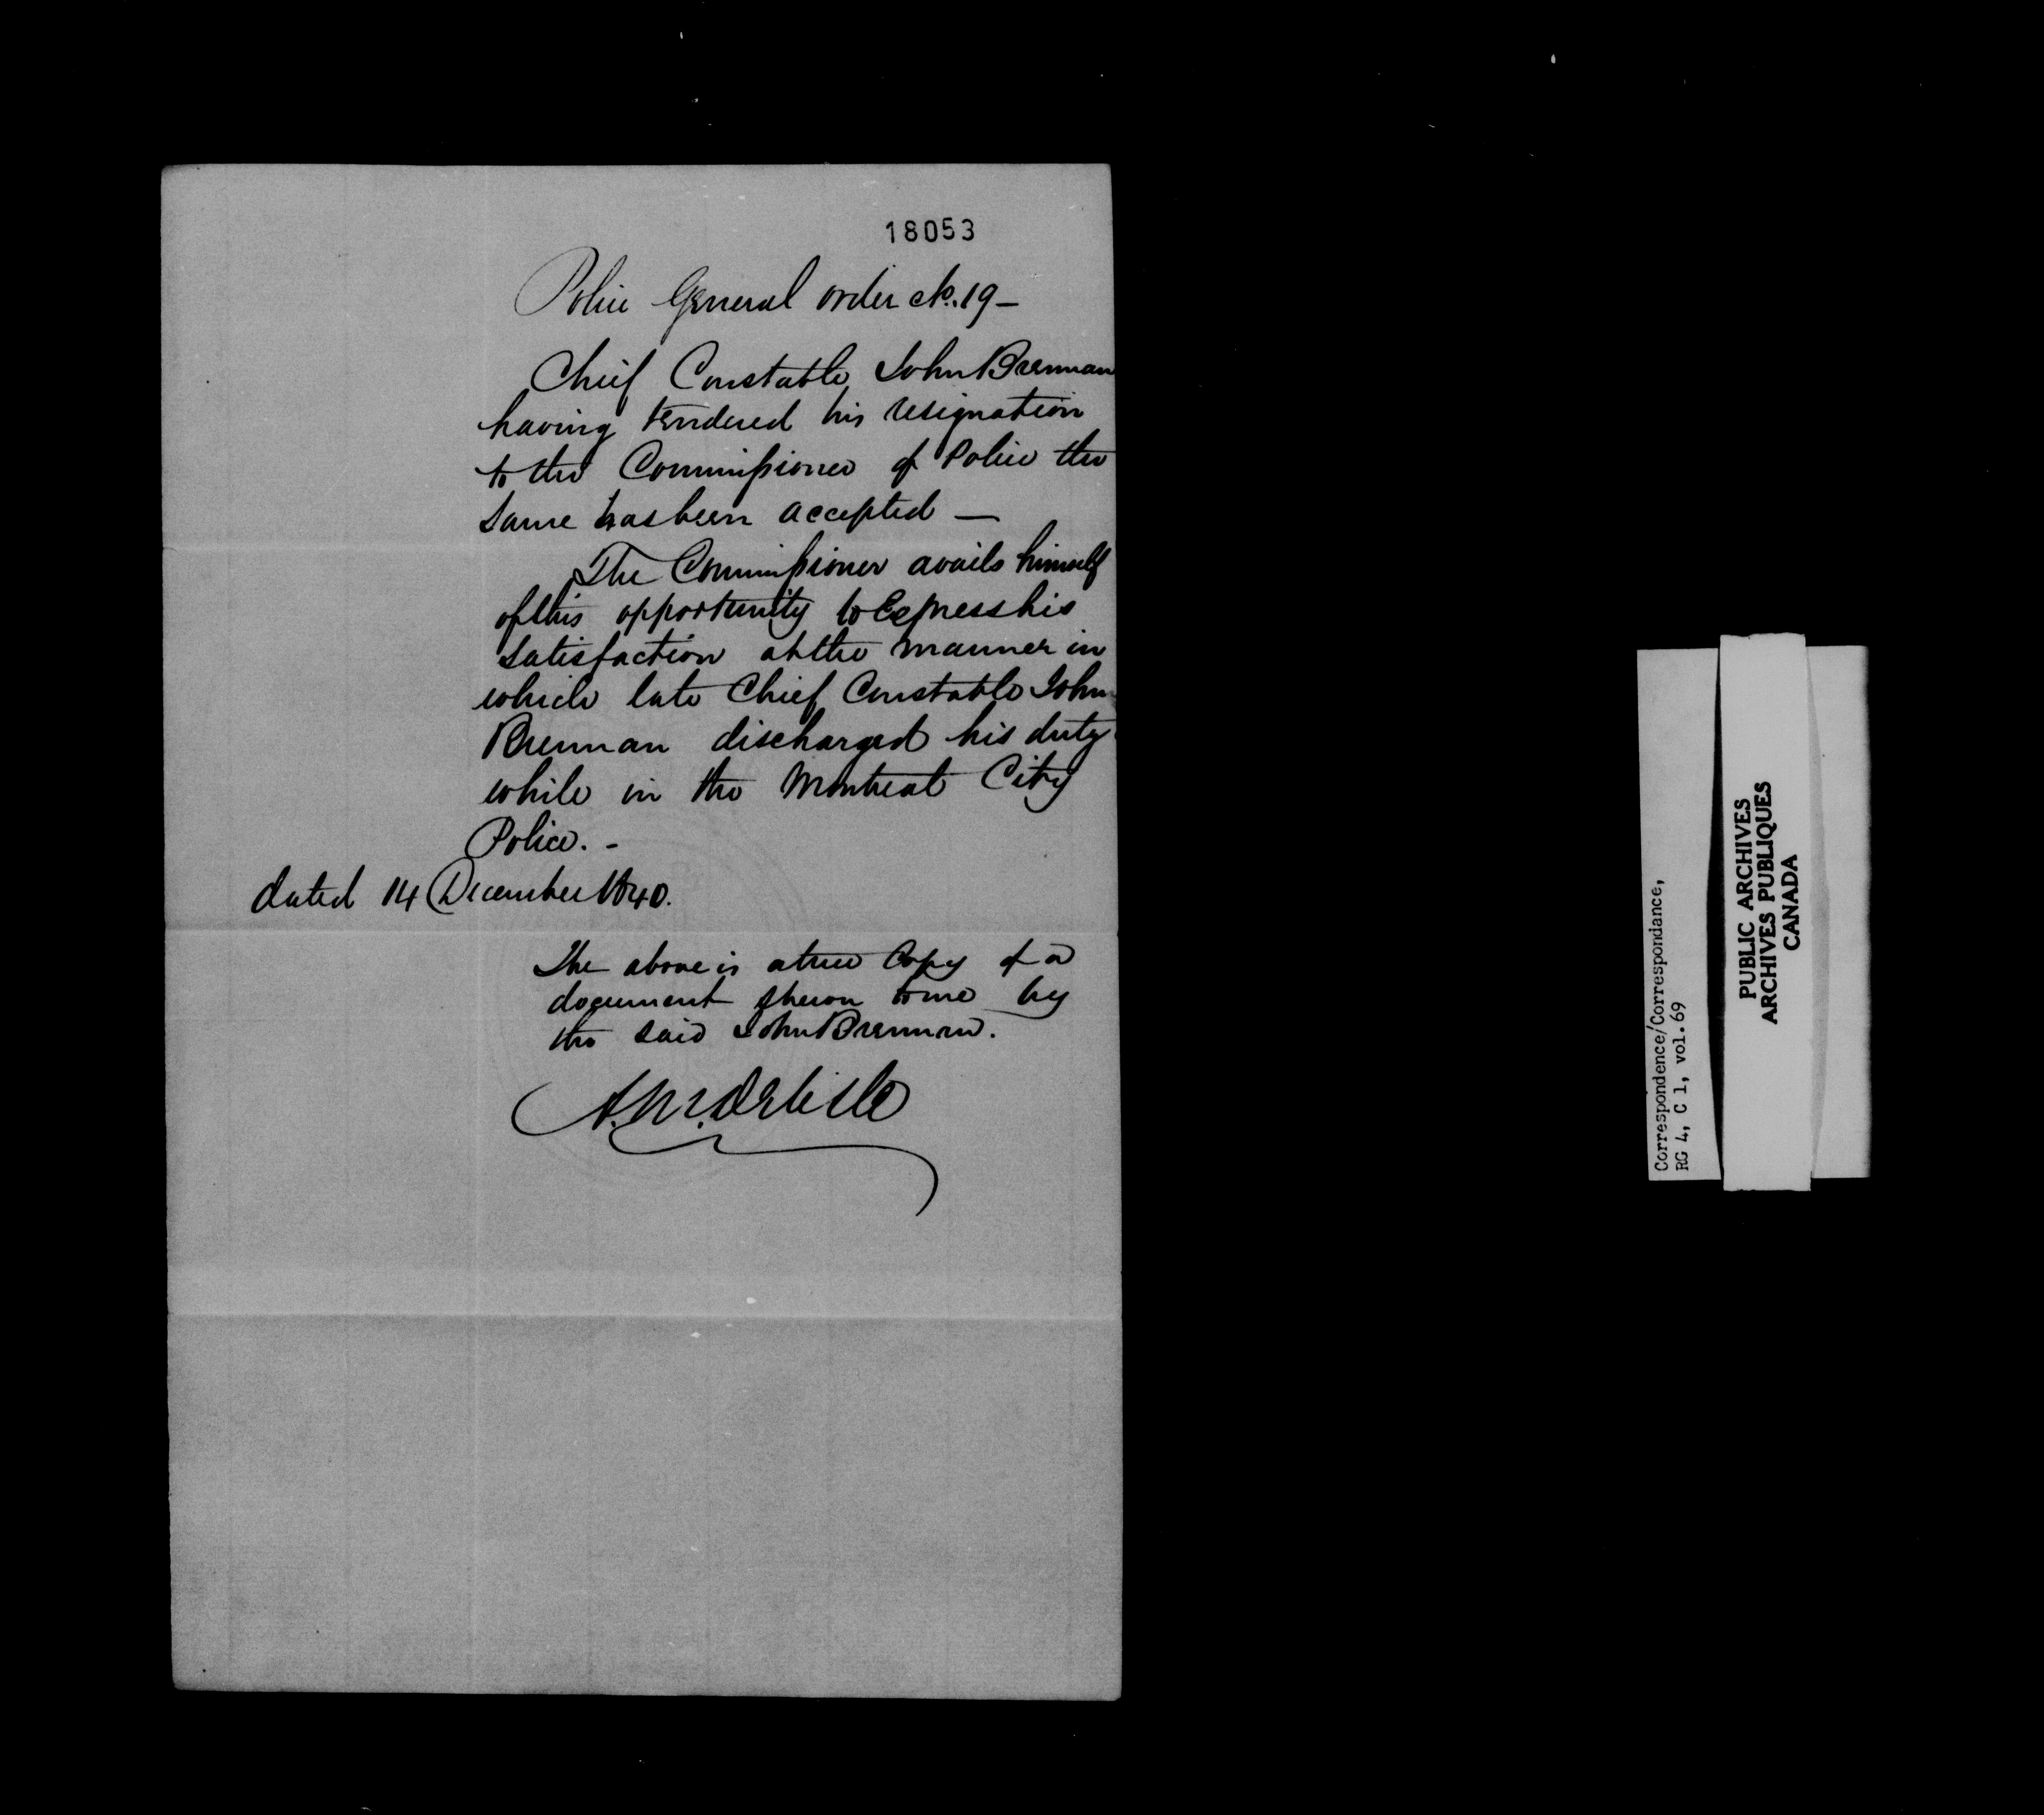 18053
Police General order No. 19 —
Chief Constable John Brennan
having tendered his resignation
to the Commissioner of Police the
same has been accepted —
The Commissioner avails himself
of this opportunity to Express his
satisfaction at the manner in
which late Chief Constable John
Brennan discharged his duty
while in the Montreal City
Police. -
dated 14 December 1840.
The above is a true Copy of a
document shewn to me by
the said John Brennan.
A. M. Delisle
Correspondence/Correspondance,
RG 4, C 1, vol.69
PUBLIC ARCHIVES
ARCHIVES PUBLIQUES
CANADA